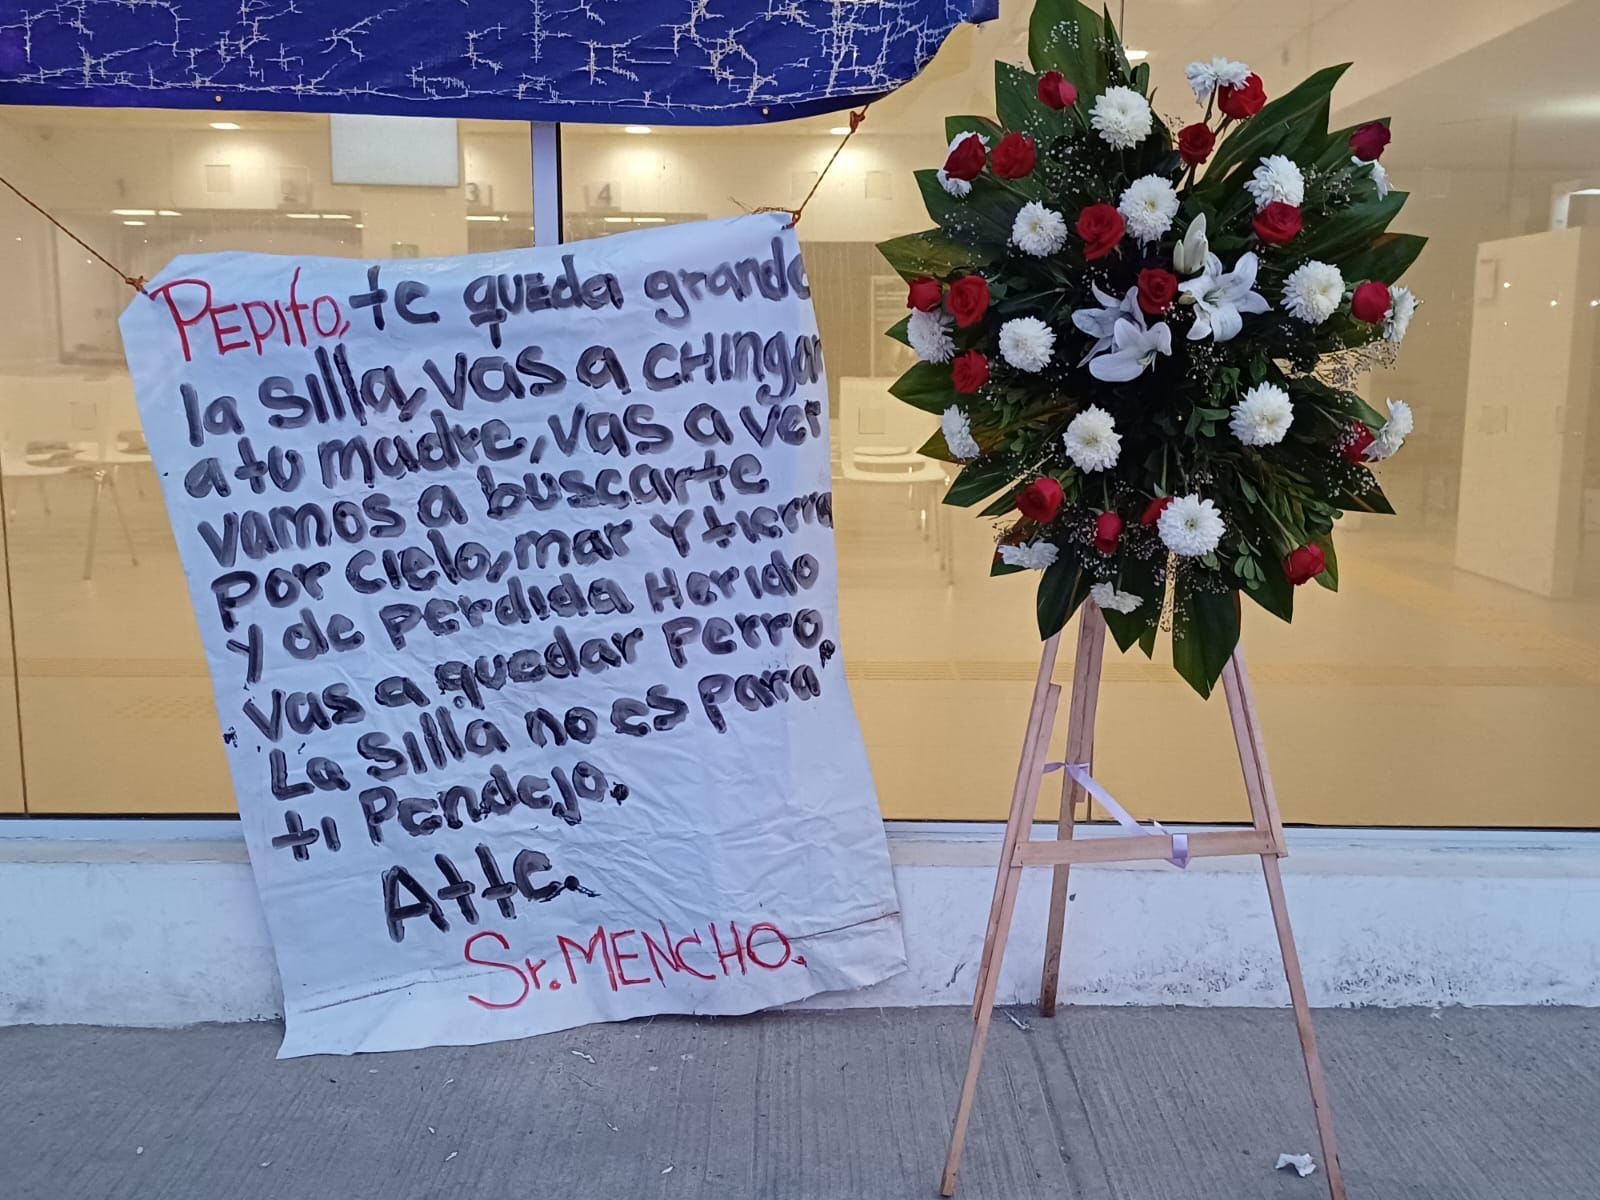 3
4
PEPito, te queda grande
la silla, vas a CHingar
a tu madre, vas a ver
vamos a buscarte
Por cielo, mar Y tierra
y de perdida Herido
vas a quedar Perro,
La Silla no es para
ti Pendejo.
Atte.
Sr. MENCHO.